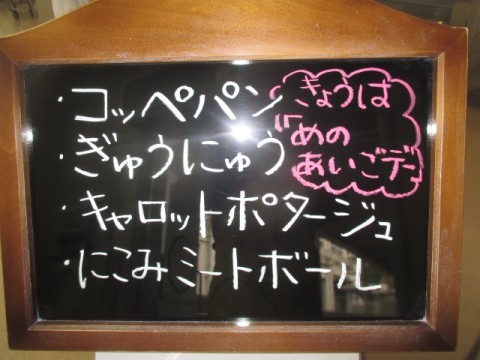 ・コッペパン
・ぎゅうにゅう
・キャロットポタージュ
・にこみミートボール
きょうは
"めの
あいごデー